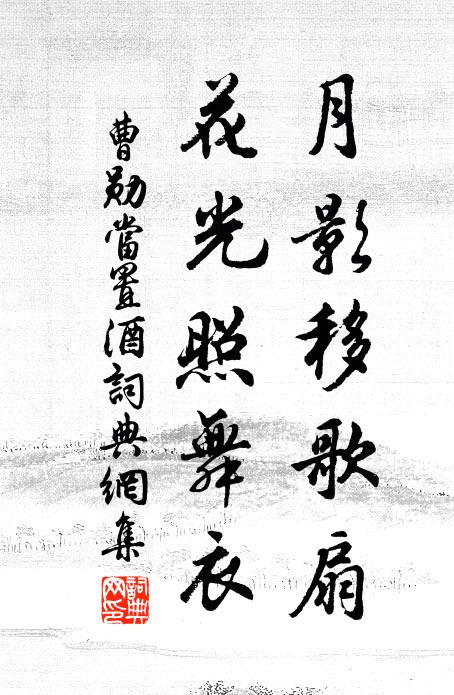 月影移歌扇
花光照舞衣
曹勛當置酒詞典網集
詞典網印